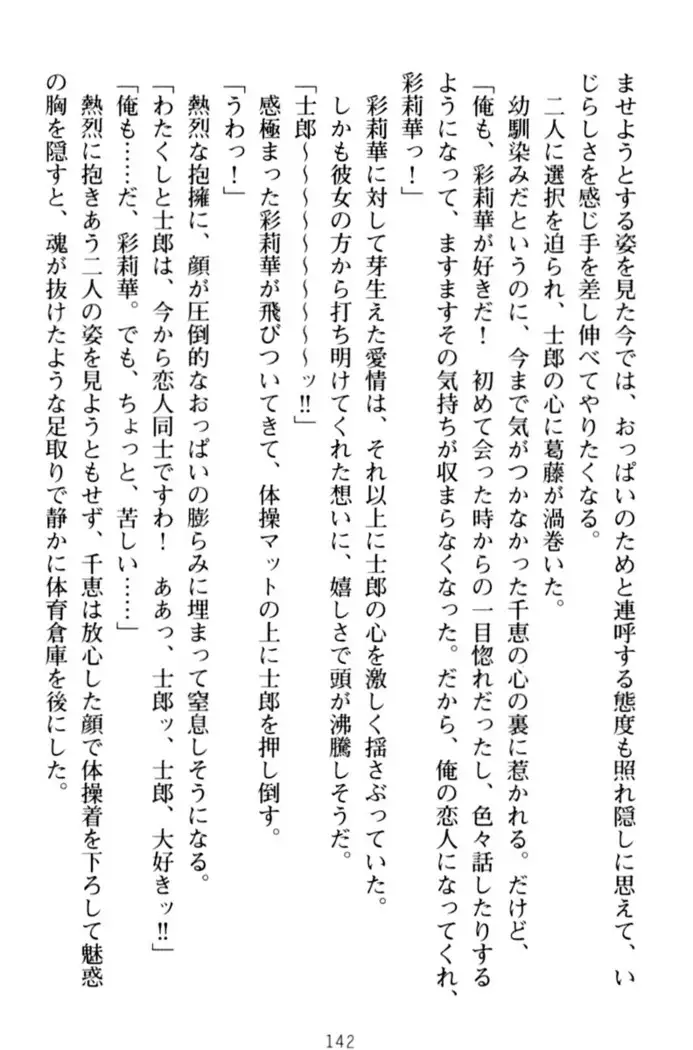 ませようとする姿を見た今では、おっぱいのためと連呼する態度も照れ隠しに思えて、い
じらしさを感じ手を差し伸べてやりたくなる。
二人に選択を迫られ、士郎の心に葛藤が渦巻いた。
幼馴染みだというのに、今まで気がつかなかった千恵の心の裏に惹かれる。だけど、
「俺も、彩莉華が好きだ！　初めて会った時からの一目惚れだったし、色々話したりする
ようになって、ますますその気持ちが収まらなくなった。だから、俺の恋人になってくれ、
彩莉華っ！」
彩莉華に対して芽生えた愛情は、それ以上に士郎の心を激しく揺さぶっていた。
しかも彼女の方から打ち明けてくれた想いに、嬉しさで頭が沸騰しそうだ。
「士郎～～～～～～～～ッ!!」
感極まった彩莉華が飛びついてきて、体操マットの上に士郎を押し倒す。
「うわっ！」
熱烈な抱擁に、顔が圧倒的なおっぱいの膨らみに埋まって窒息しそうになる。
「わたくしと士郎は、今から恋人同士ですわ！　ああっ、士郎ッ、士郎、大好きッ!!」
「俺も……だ、彩莉華。でも、ちょっと、苦しい……」
熱烈に抱きあう二人の姿を見ようともせず、千恵は放心した顔で体操着を下ろして魅惑
の胸を隠すと、魂が抜けたような足取りで静かに体育倉庫を後にした。
142